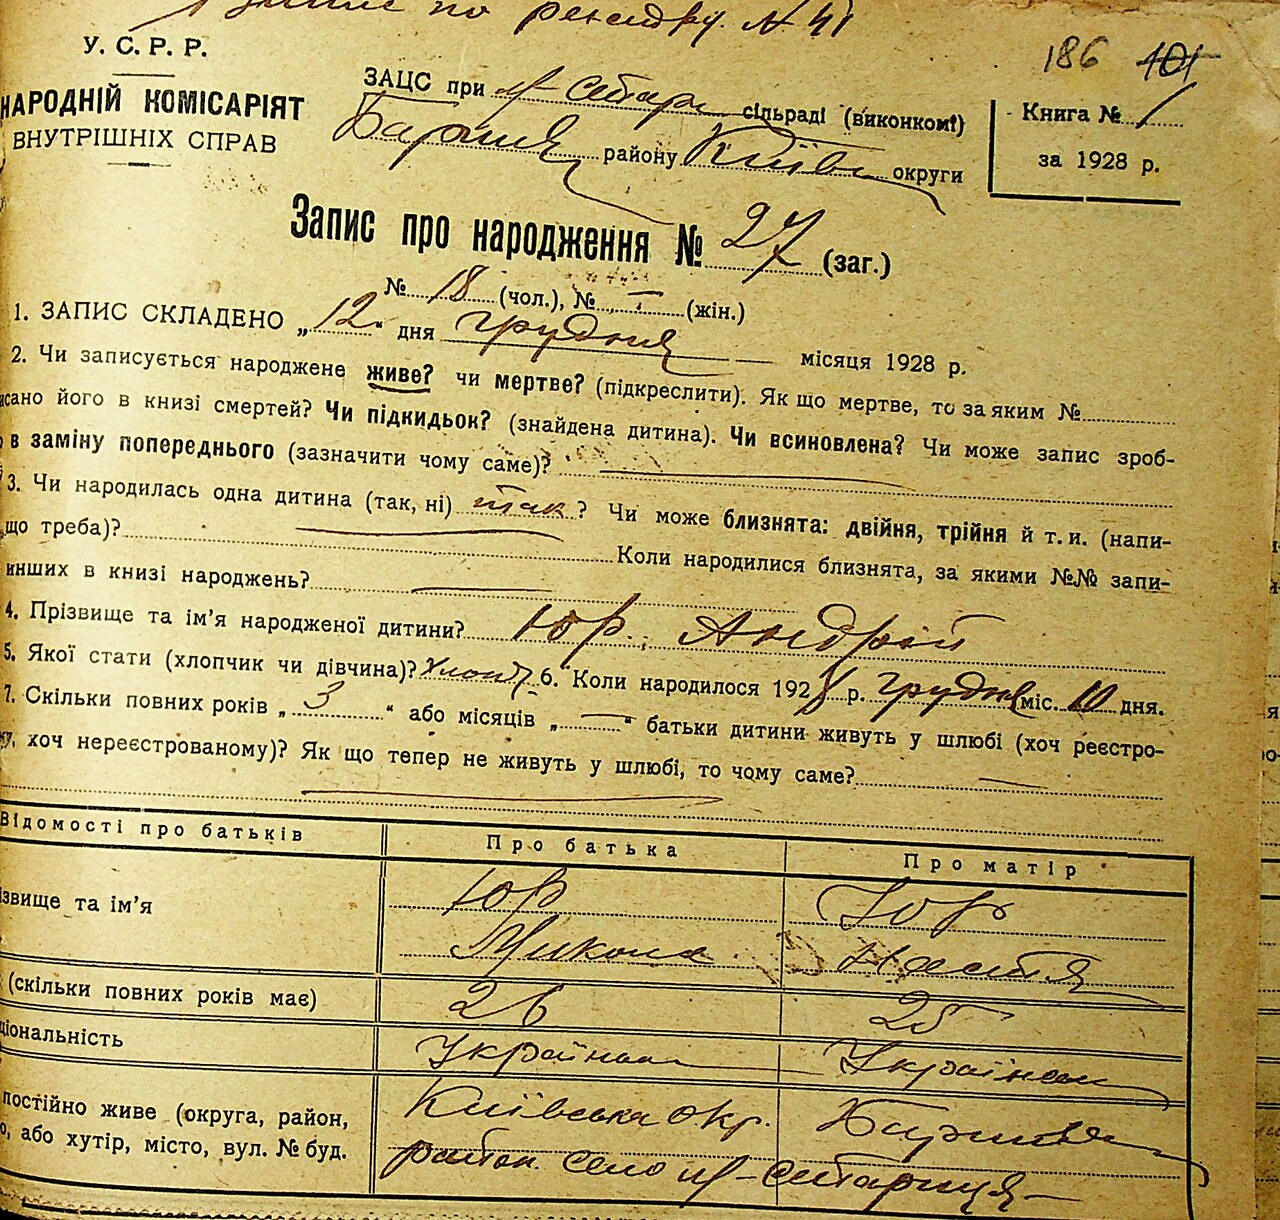 по № 41
У. С. Р. Р.
НАРОДНІЙ КОМІСАРІЯТ
ВНУТРІШНІХ СПРАВ
186 101
ЗАЦС при сільраді (виконкомі)
району Київ округи
Книга № 1
за 1928 р.
Запис про народження № 27 (заг.)
№ 18 (чол.), № — (жін.)
1. ЗАПИС СКЛАДЕНО „12“ дня грудня — місяця 1928 р.
2. Чи записується народжене живе? чи мертве? (підкреслити). Як що мертве, то за яким №
исано його в книзі смертей? Чи підкидьок? (знайдена дитина). Чи всиновлена? Чи може запис зроб-
о в заміну попереднього (зазначити чому саме)?
3. Чи народилась одна дитина (так, ні) так? Чи може близнята: двійня, трійня й т. и. (напи-
що треба)? Коли народилися близнята, за якими №№ запи-
инших в книзі народжень?
4. Прізвище та ім'я народженої дитини? Юр. Андрій
5. Якої стати (хлопчик чи дівчина)? Хлопч 6. Коли народилося 1928 р. грудня міс. 10 дня.
7. Скільки повних років „3“ або місяців „—“ батьки дитини живуть у шлюбі (хоч реєстро-
му, хоч нереєстрованому)? Як що тепер не живуть у шлюбі, то чому саме? —
Відомості про батьків Про батька Про матір
ізвище та ім'я Юр Юр
Микола Настя
(скільки повних років має) 26 25
ціональність Українець Українка
постійно живе (округа, район,
о, або хутір, місто, вул. № буд.
Київська окр.
район. село